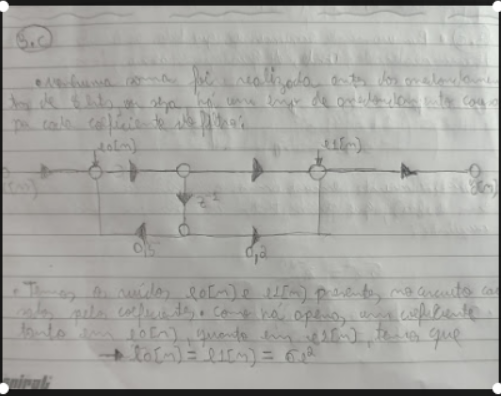 5.c)
• nenhuma soma foi realizada antes dos arredondamen
tos de 8 bits ou seja há um erro de arredondamento
pa cada coeficiente do filtro.
e0[n] e1[n]
z⁻¹
0,5 0,2
• Temos os ruídos e0[n] e e1[n] presentes no circuito
pelos coeficientes. Como há apenas um coeficiente
tanto em e0[n], quanto em e1[n], temos que
→ e0[n] = e1[n] = σe²